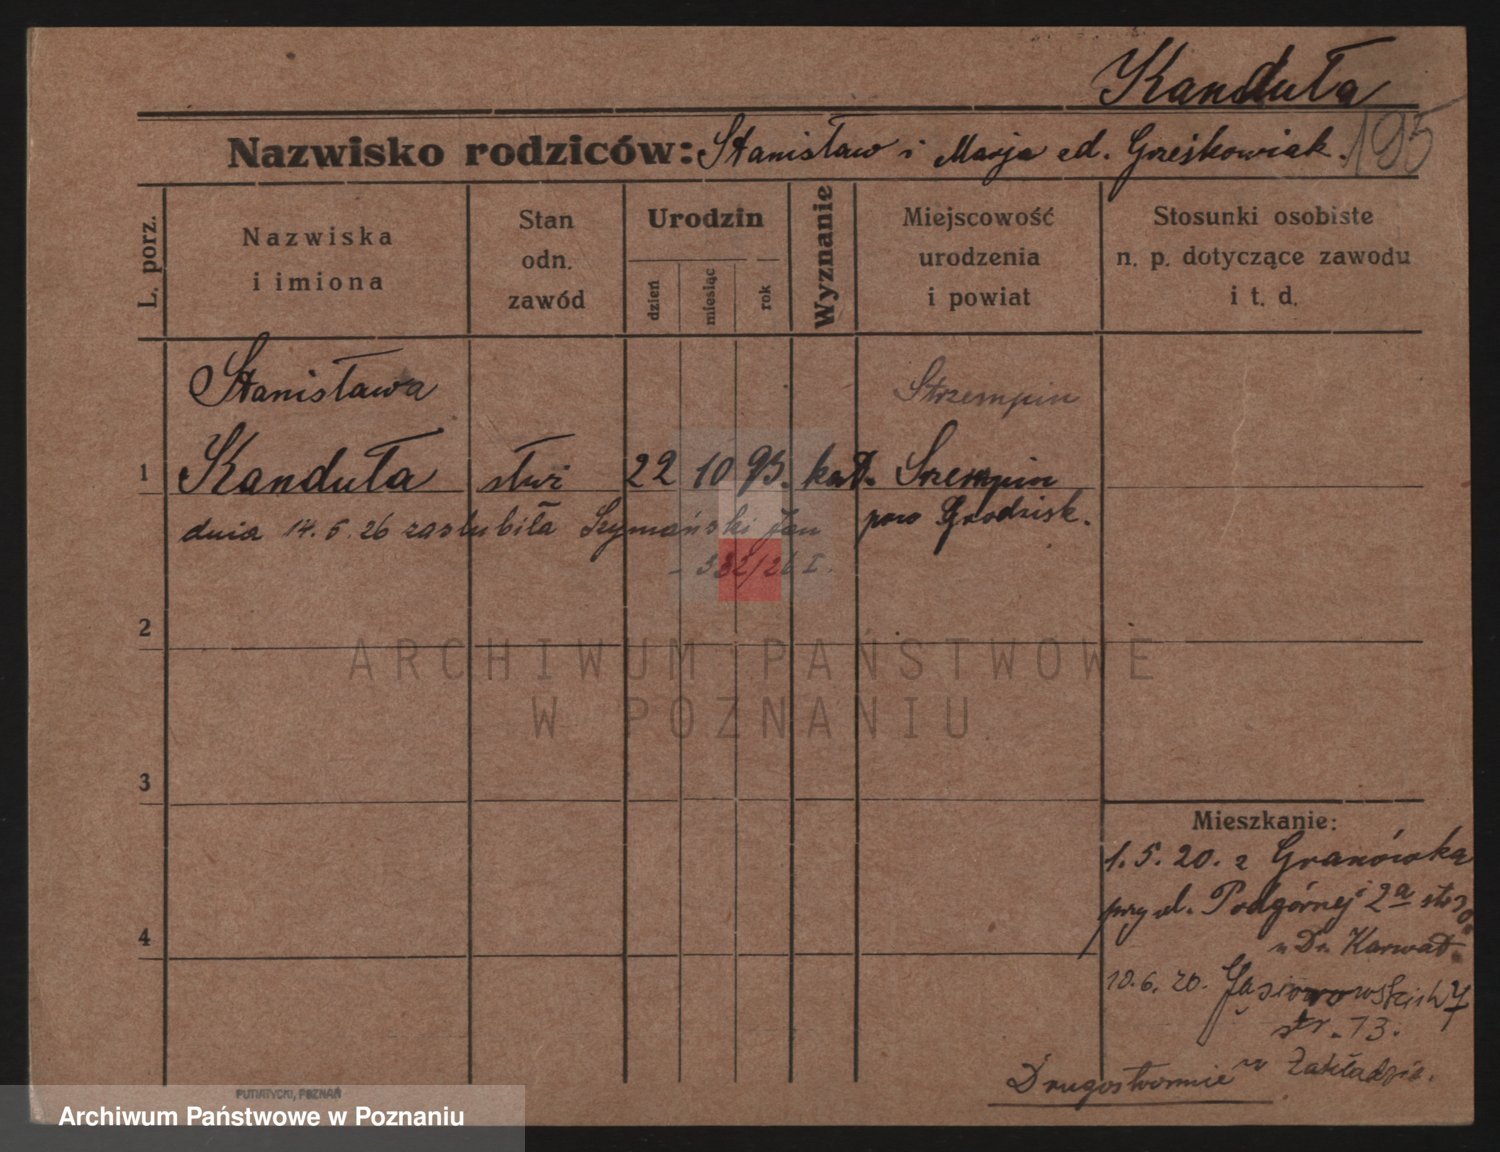 Kanduła
195
Nazwisko rodziców: Stanisław i Marja ed. Grześkowiak.
L. porz.
Nazwiska
i imiona
Stan
odn.
zawód
Urodzin
dzień
miesiąc
rok
Wyznanie
Miejscowość
urodzenia
i powiat
Stosunki osobiste
n. p. dotyczące zawodu
i t. d.
Stanisława
Strzempin
1 Kanduła służ 22 10 93. kat. Srzempin
dnia 14. 5. 26 zaślubiła Szymański Jan pow Grodzisk.
- 332/26 I.
2
3
4
Mieszkanie:
1. 5. 20. z Granówka
przy ul. Podgórnej 2a
u Dr. Karwat.
10. 6. 20. Gąsiorowskich 7
str. 13.
Drugostronnie w Zakładzie.
PUTIATYCKI, POZNAŃ
ARCHIWUM PAŃSTWOWE
W POZNANIU
Archiwum Państwowe w Poznaniu